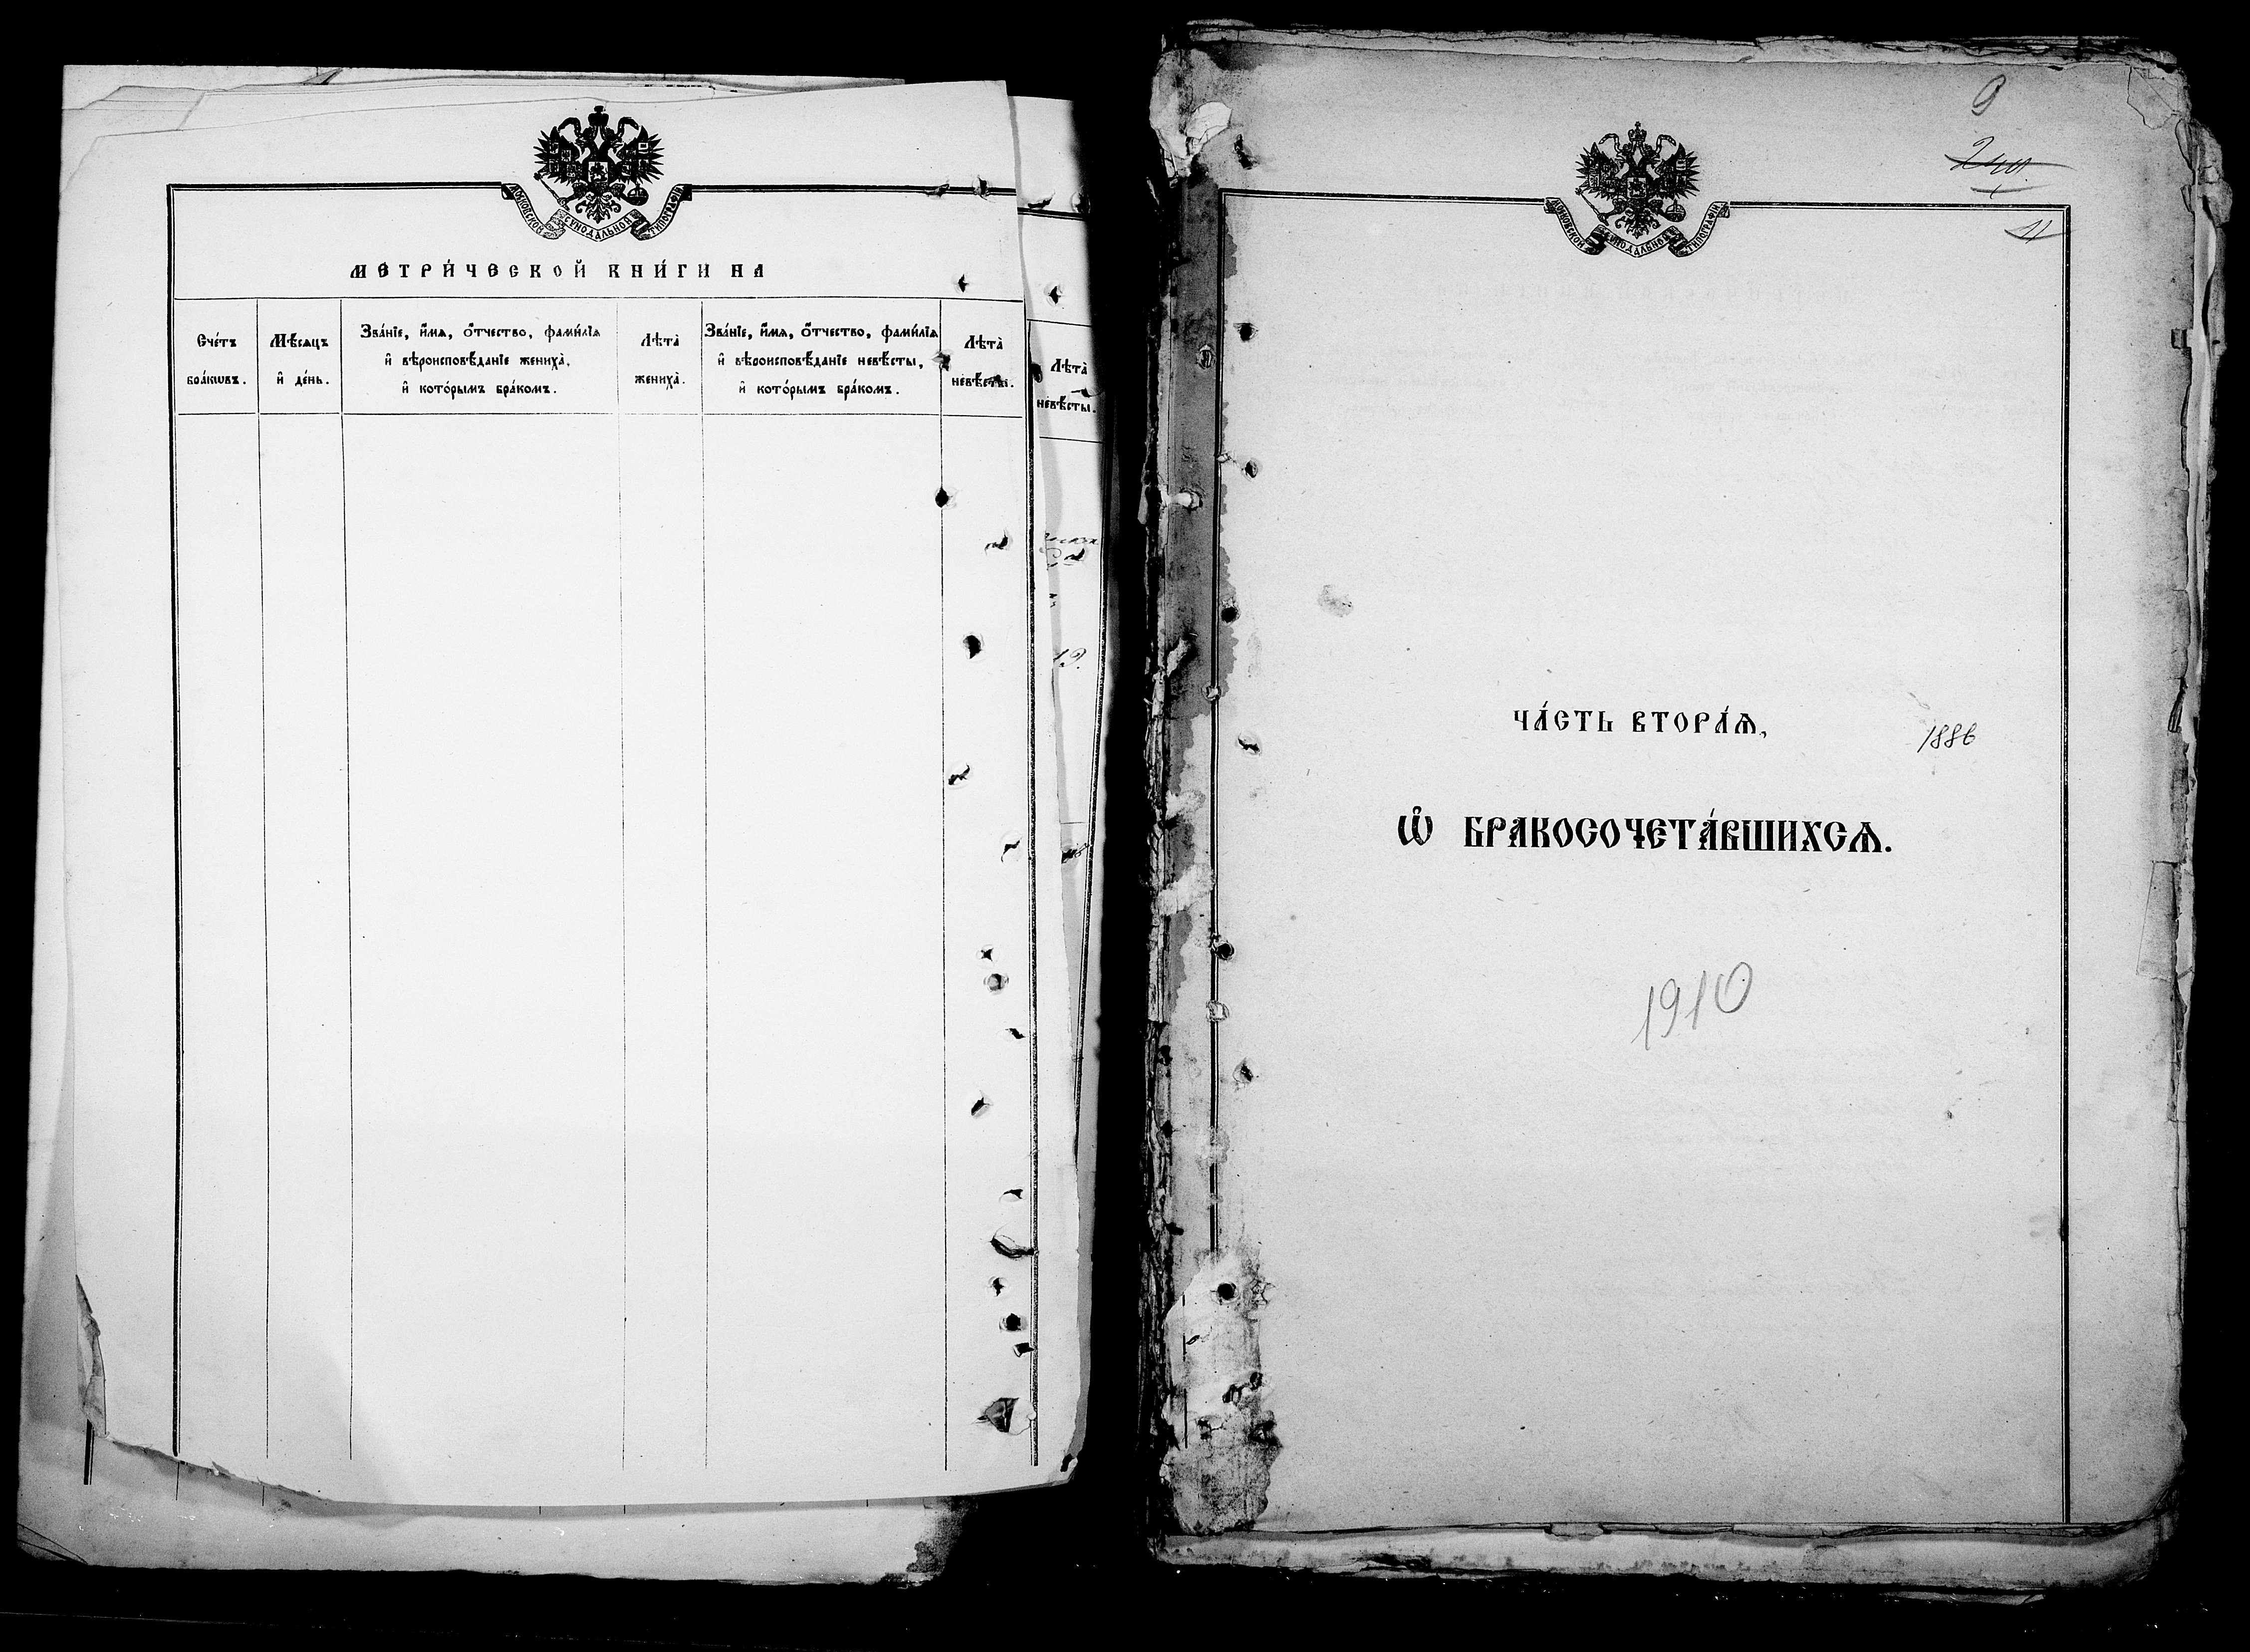 МОСКОВСКОЙ СѴНОДАЛЬНОЙ ТИПОГРАФІИ
МЕТРИ́ЧЕСКОЙ КНИ́ГИ НА
Сче́тъ бра́кѡвъ.
Мѣ́сяцъ и҆ де́нь.
Зва́нїе, и҆́мѧ, ѻ҆́тчество, фами́лїѧ
и҆ вѣроисповѣ́данїе жениха̀,
и҆ кото́рымъ бра́комъ.
Лѣта̀ жениха̀.
Зва́нїе, и҆́мѧ, ѻ҆́тчество, фами́лїѧ
и҆ вѣроисповѣ́данїе невѣ́сты,
и҆ кото́рымъ бра́комъ.
Лѣта̀ невѣ́сты.
Лѣта̀
невѣ́сты.
19.
9
11
МОСКОВСКОЙ СѴНОДАЛЬНОЙ ТИПОГРАФІИ
ЧА́СТЬ ВТОРА́Ѧ,
1886
Ѡ҆ БРАКОСОЧЕТА́ВШИХСѦ.
1910